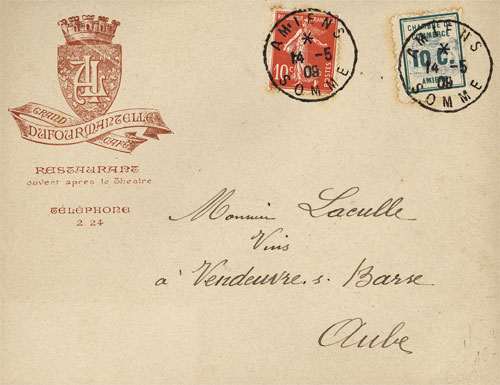 GRAND
DUFOURMANTELLE
CAFÉ
RESTAURANT
ouvert après le Théatre
TÉLÉPHONE
2.24
10c
POSTES
AMIENS
*
14 -5
09
SOMME
CHAMBRE DE
COMMERCE
10 C.
AMIENS
AMIENS
*
14 -5
09
SOMME
Monsieur Laculle
Vins
à Vendeuvre s. Barse
Aube